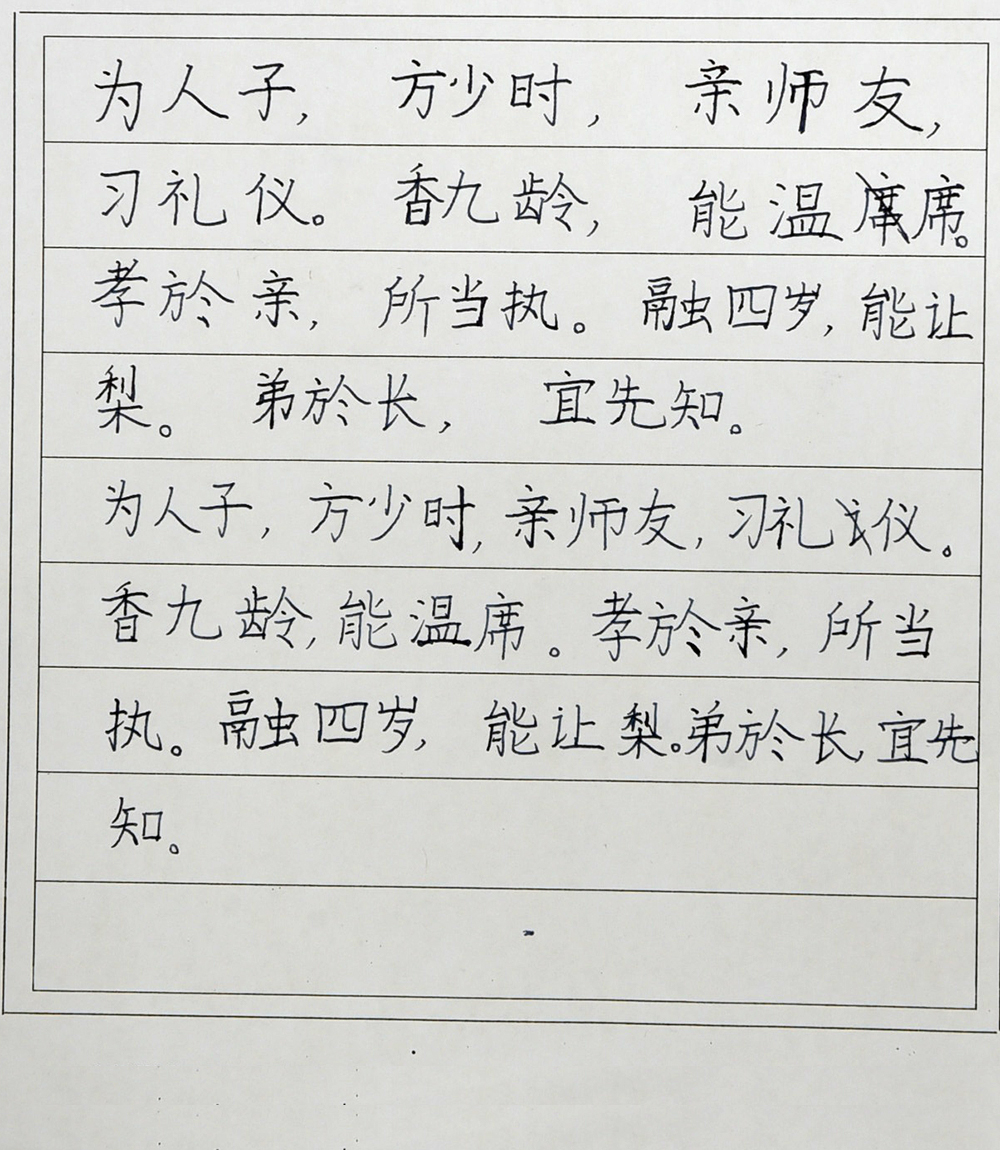 为人子，方少时，亲师友，
习礼仪。香九龄，能温席。
孝於亲，所当执。融四岁，能让
梨。弟於长，宜先知。
为人子，方少时，亲师友，习礼仪。
香九龄，能温席。孝於亲，所当
执。融四岁，能让梨。弟於长，宜先
知。